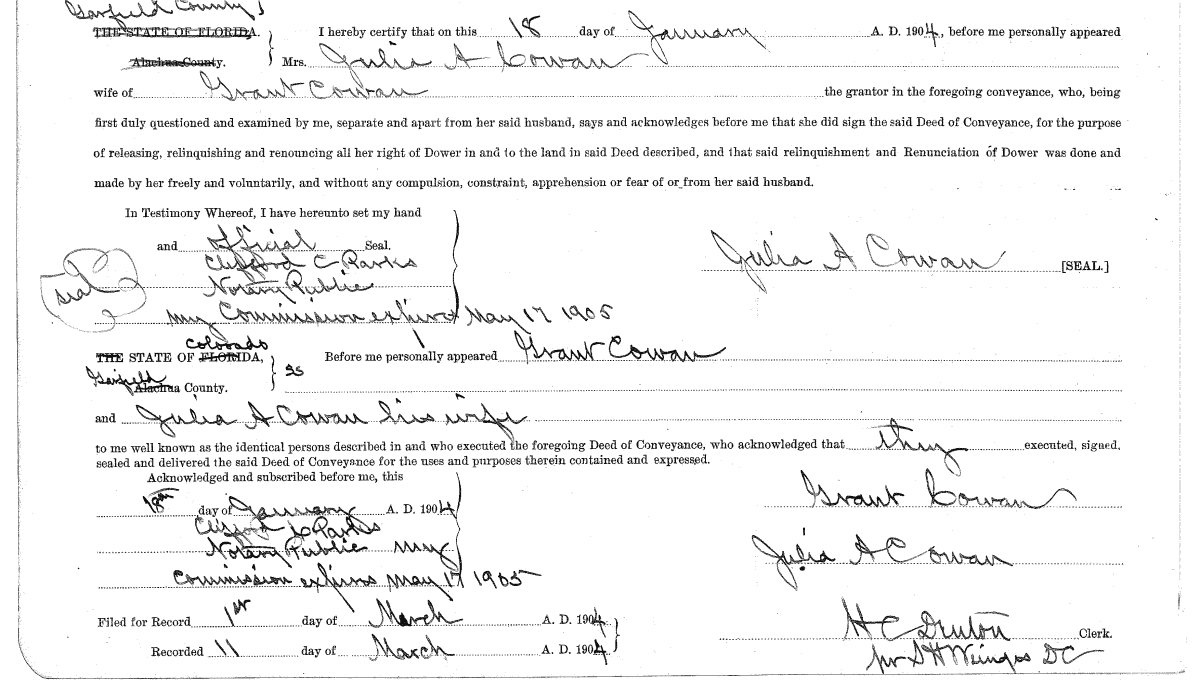 Garfield County }
THE STATE OF FLORIDA. I hereby certify that on this 18 day of January A. D. 1904, before me personally appeared
Alachua County. Mrs. Julia A Cowan
wife of Grant Cowan the grantor in the foregoing conveyance, who, being
first duly questioned and examined by me, separate and apart from her said husband, says and acknowledges before me that she did sign the said Deed of Conveyance, for the purpose
of releasing, relinquishing and renouncing all her right of Dower in and to the land in said Deed described, and that said relinquishment and Renunciation of Dower was done and
made by her freely and voluntarily, and without any compulsion, constraint, apprehension or fear of or from her said husband.
In Testimony Whereof, I have hereunto set my hand
and official Seal.
Julia A Cowan [SEAL.]
Clifford C Parks
seal
Notary Public
my Commission expires May 17 1905
Colorado
THE STATE OF FLORIDA, } ss Before me personally appeared Grant Cowan
Garfield
Alachua County.
and Julia A Cowan his wife
to me well known as the identical persons described in and who executed the foregoing Deed of Conveyance, who acknowledged that they executed, signed,
sealed and delivered the said Deed of Conveyance for the uses and purposes therein contained and expressed.
Acknowledged and subscribed before me, this
18th day of January A. D. 1904
Grant Cowan
Clifford C Parks
Notary Public my
Julia A Cowan
Commission expires May 17 1905
Filed for Record 1st day of March A. D. 1904
H C Clerk.
Recorded 11 day of March A. D. 1904
per S H DC